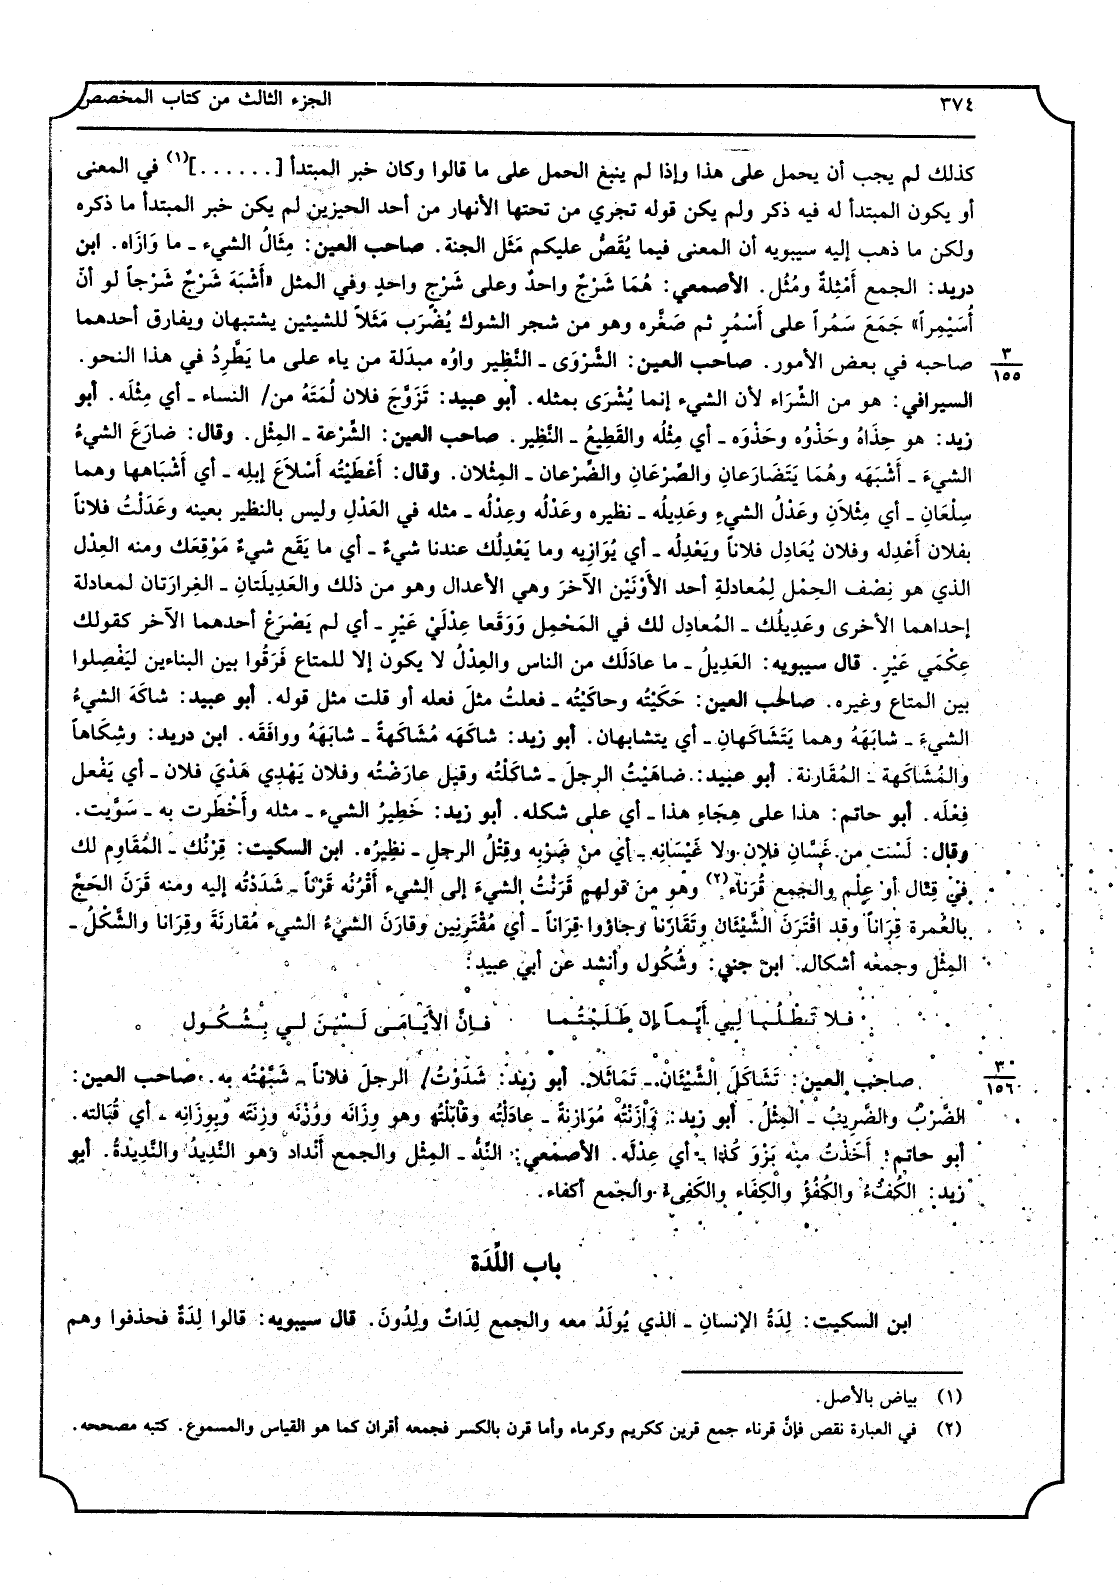 ٣٧٤
الجزء الثالث من كتاب المخصص
كذلك لم يجب أن يحمل على هذا وإذا لم ينبغ الحمل على ما قالوا وكان خبر المبتدأ [......](١) في المعنى
أو يكون المبتدأ له فيه ذكر ولم يكن قوله تجري من تحتها الأنهار من أحد الحيزين لم يكن خبر المبتدأ ما ذكره
ولكن ما ذهب إليه سيبويه أن المعنى فيما يُقَصُّ عليكم مَثَل الجنة. صاحب العين: مِثَالُ الشيء ـ ما وَازَاه. ابن
دريد: الجمع أَمْثِلةٌ ومُثُل. الأصمعي: هُمَا شَرْجٌ واحدٌ وعلى شَرْجٍ واحدٍ وفي المثل «أَشْبَهَ شَرْجٌ شَرْجاً لو أنّ
أُسَيْمِراً» جَمَعَ سَمُراً على أَسْمُرٍ ثم صَغَّره وهو من شجر الشوك يُضْرَب مَثَلاً للشيئين يشتبهان ويفارق أحدهما
صاحبه في بعض الأمور. صاحب العين: الشَّرْوَى ـ النَّظِير واوُه مبدَلة من ياء على ما يَطَّرِدُ في هذا النحو.
٣
١٥٥
السيرافي: هو من الشِّرَاء لأن الشيء إنما يُشْرَى بمثله. أبو عبيد: تَزَوَّجَ فلان لُمَتَهُ من/ النساء ـ أي مِثْلَه. أبو
زيد: هو حِذَاهُ وحَذْوُه وحَذْوَه ـ أي مِثْلُه والقَطِيعُ ـ النَّظِير. صاحب العين: الشِّرْعة ـ المِثْل. وقال: ضارَعَ الشيءُ
الشيءَ ـ أَشْبَهَه وهُمَا يَتَضَارَعانِ والصِّرْعَانِ والضِّرْعان ـ المِثْلان. وقال: أَعْطَيْتُه أَسْلاَعَ إبِلِه ـ أي أَشْبَاهها وهما
سِلْعَانِ ـ أي مِثْلاَنِ وعَدْلُ الشيءِ وعَدِيلُه ـ نظيره وعَدْلُه وعِدْلُه ـ مثله في العَدْلِ وليس بالنظير بعينه وعَدَلْتُ فلاناً
بفلان أَعْدِله وفلان يُعَادِل فلاناً ويَعْدِلُه ـ أي يُوَازِيه وما يَعْدِلُك عندنا شيءٌ ـ أي ما يَقَع شيءٌ مَوْقِعَك ومنه العِدْل
الذي هو نِصْف الحِمْل لِمُعادلةِ أحد الأَوْنَيْن الآخرَ وهي الأعدال وهو من ذلك والعَدِيلَتانِ ـ الغِرارَتان لمعادلة
إحداهما الأخرى وعَدِيلُك ـ المُعادِل لك في المَحْمِل وَوَقَعا عِدْلَيْ عَيْرٍ ـ أي لم يَصْرَعْ أحدهما الآخر كقولك
عِكْمَي عَيْرٍ. قال سيبويه: العَدِيلُ ـ ما عادَلَك من الناس والعِدْلُ لا يكون إلا للمتاع فَرَقُوا بين البناءين ليَفْصِلوا
بين المتاع وغيره. صاحب العين: حَكَيْتُه وحاكَيْتُه ـ فعلتُ مثلَ فعله أو قلت مثل قوله. أبو عبيد: شاكَهَ الشيءُ
الشيءَ ـ شابَهَهُ وهما يَتَشَاكَهانِ ـ أي يتشابهان. أبو زيد: شاكَهَه مُشَاكَهةً ـ شابَهَهُ ووافَقَه. ابن دريد: وشِكَاهاً
والمُشَاكَهة ـ المُقَارنة. أبو عبيد: ضاهَيْتُ الرجلَ ـ شاكَلْتُه وقيل عارَضْتُه وفلان يَهْدِي هَدْيَ فلان ـ أي يَفْعل
فِعْلَه. أبو حاتم: هذا على هِجَاءِ هذا ـ أي على شكله. أبو زيد: خَطِيرُ الشيء ـ مثله وأَخْطَرت به ـ سَوَّيت.
وقال: لَسْت من غَسَّانِ فلان ولا غَيْسَانِه ـ أي من ضَرْبِه وقِتْلُ الرجلِ ـ نظيرُه. ابن السكيت: قِرْنُك ـ المُقَاوِم لك
في قِتَال أو عِلْم والجمع قُرَناء(٢) وهو من قولهم قَرَنْتُ الشيءَ إلى الشيء أَقْرُنُه قَرْناً ـ شَدَدْتُه إليه ومنه قَرَنَ الحَجَّ
بالعُمرة قِرَاناً وقد اقْتَرَنَ الشَّيْئَان وتَقَارَنَا وجاؤوا قِرَاناً ـ أي مُقْتَرِنِين وقارَنَ الشيءُ الشيء مُقارنَةً وقِرَانا والشَّكْلُ ـ
المِثْل وجمعه أشكال. ابن جني: وشُكُول وأنشد عن أبي عبيد:
فلا تَطْلُبا لِي أَيِّماً إن طَلَبْتُما فإنَّ الأَيَامَى لَسْنَ لي بِشُكُول
٣
١٥٦
صاحب العين: تَشَاكَلَ الشَّيْئَانِ ـ تَمَاثَلا. أبو زيد: شَدَوْتُ/ الرجلَ فلاناً ـ شَبَّهْتُه به. صاحب العين:
الضَّرْبُ والضَّرِيبُ ـ المِثْلُ. أبو زيد: وَازَنْتُه مُوَازنةً ـ عادَلْتُه وقابَلْتُه وهو وِزَانَه ووَزْنَه وزِنَتَه وبِوِزَانِه ـ أي قُبَالته.
أبو حاتم: أَخَذْتُ منه بَزْوَ كَذا ـ أي عِدْلَه. الأصمعي: النِّدُّ ـ المِثْل والجمع أَنْداد وهو النَّدِيدُ والنَّدِيدةُ. أبو
زيد: الكُفْءُ والكُفُؤُ والكِفَاء والكَفِيءُ والجمع أكفاء.
باب اللِّدَة
ابن السكيت: لِدَةُ الإنسانِ ـ الذي يُولَدُ معه والجمع لِدَاتٌ ولِدُونَ. قال سيبويه: قالوا لِدَةٌ فحذفوا وهم
(١) بياض بالأصل.
(٢) في العبارة نقص فإنَّ قرناء جمع قرين ككريم وكرماء وأما قرن بالكسر فجمعه أقران كما هو القياس والمسموع. كتبه مصححه.